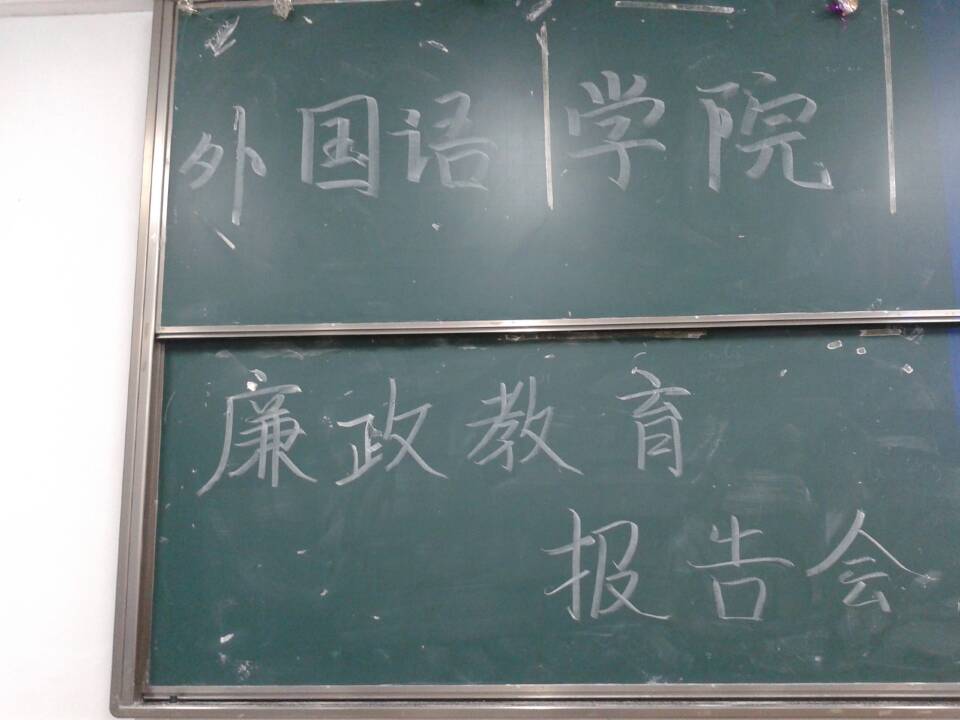 外国语学院
廉政教育
报告会